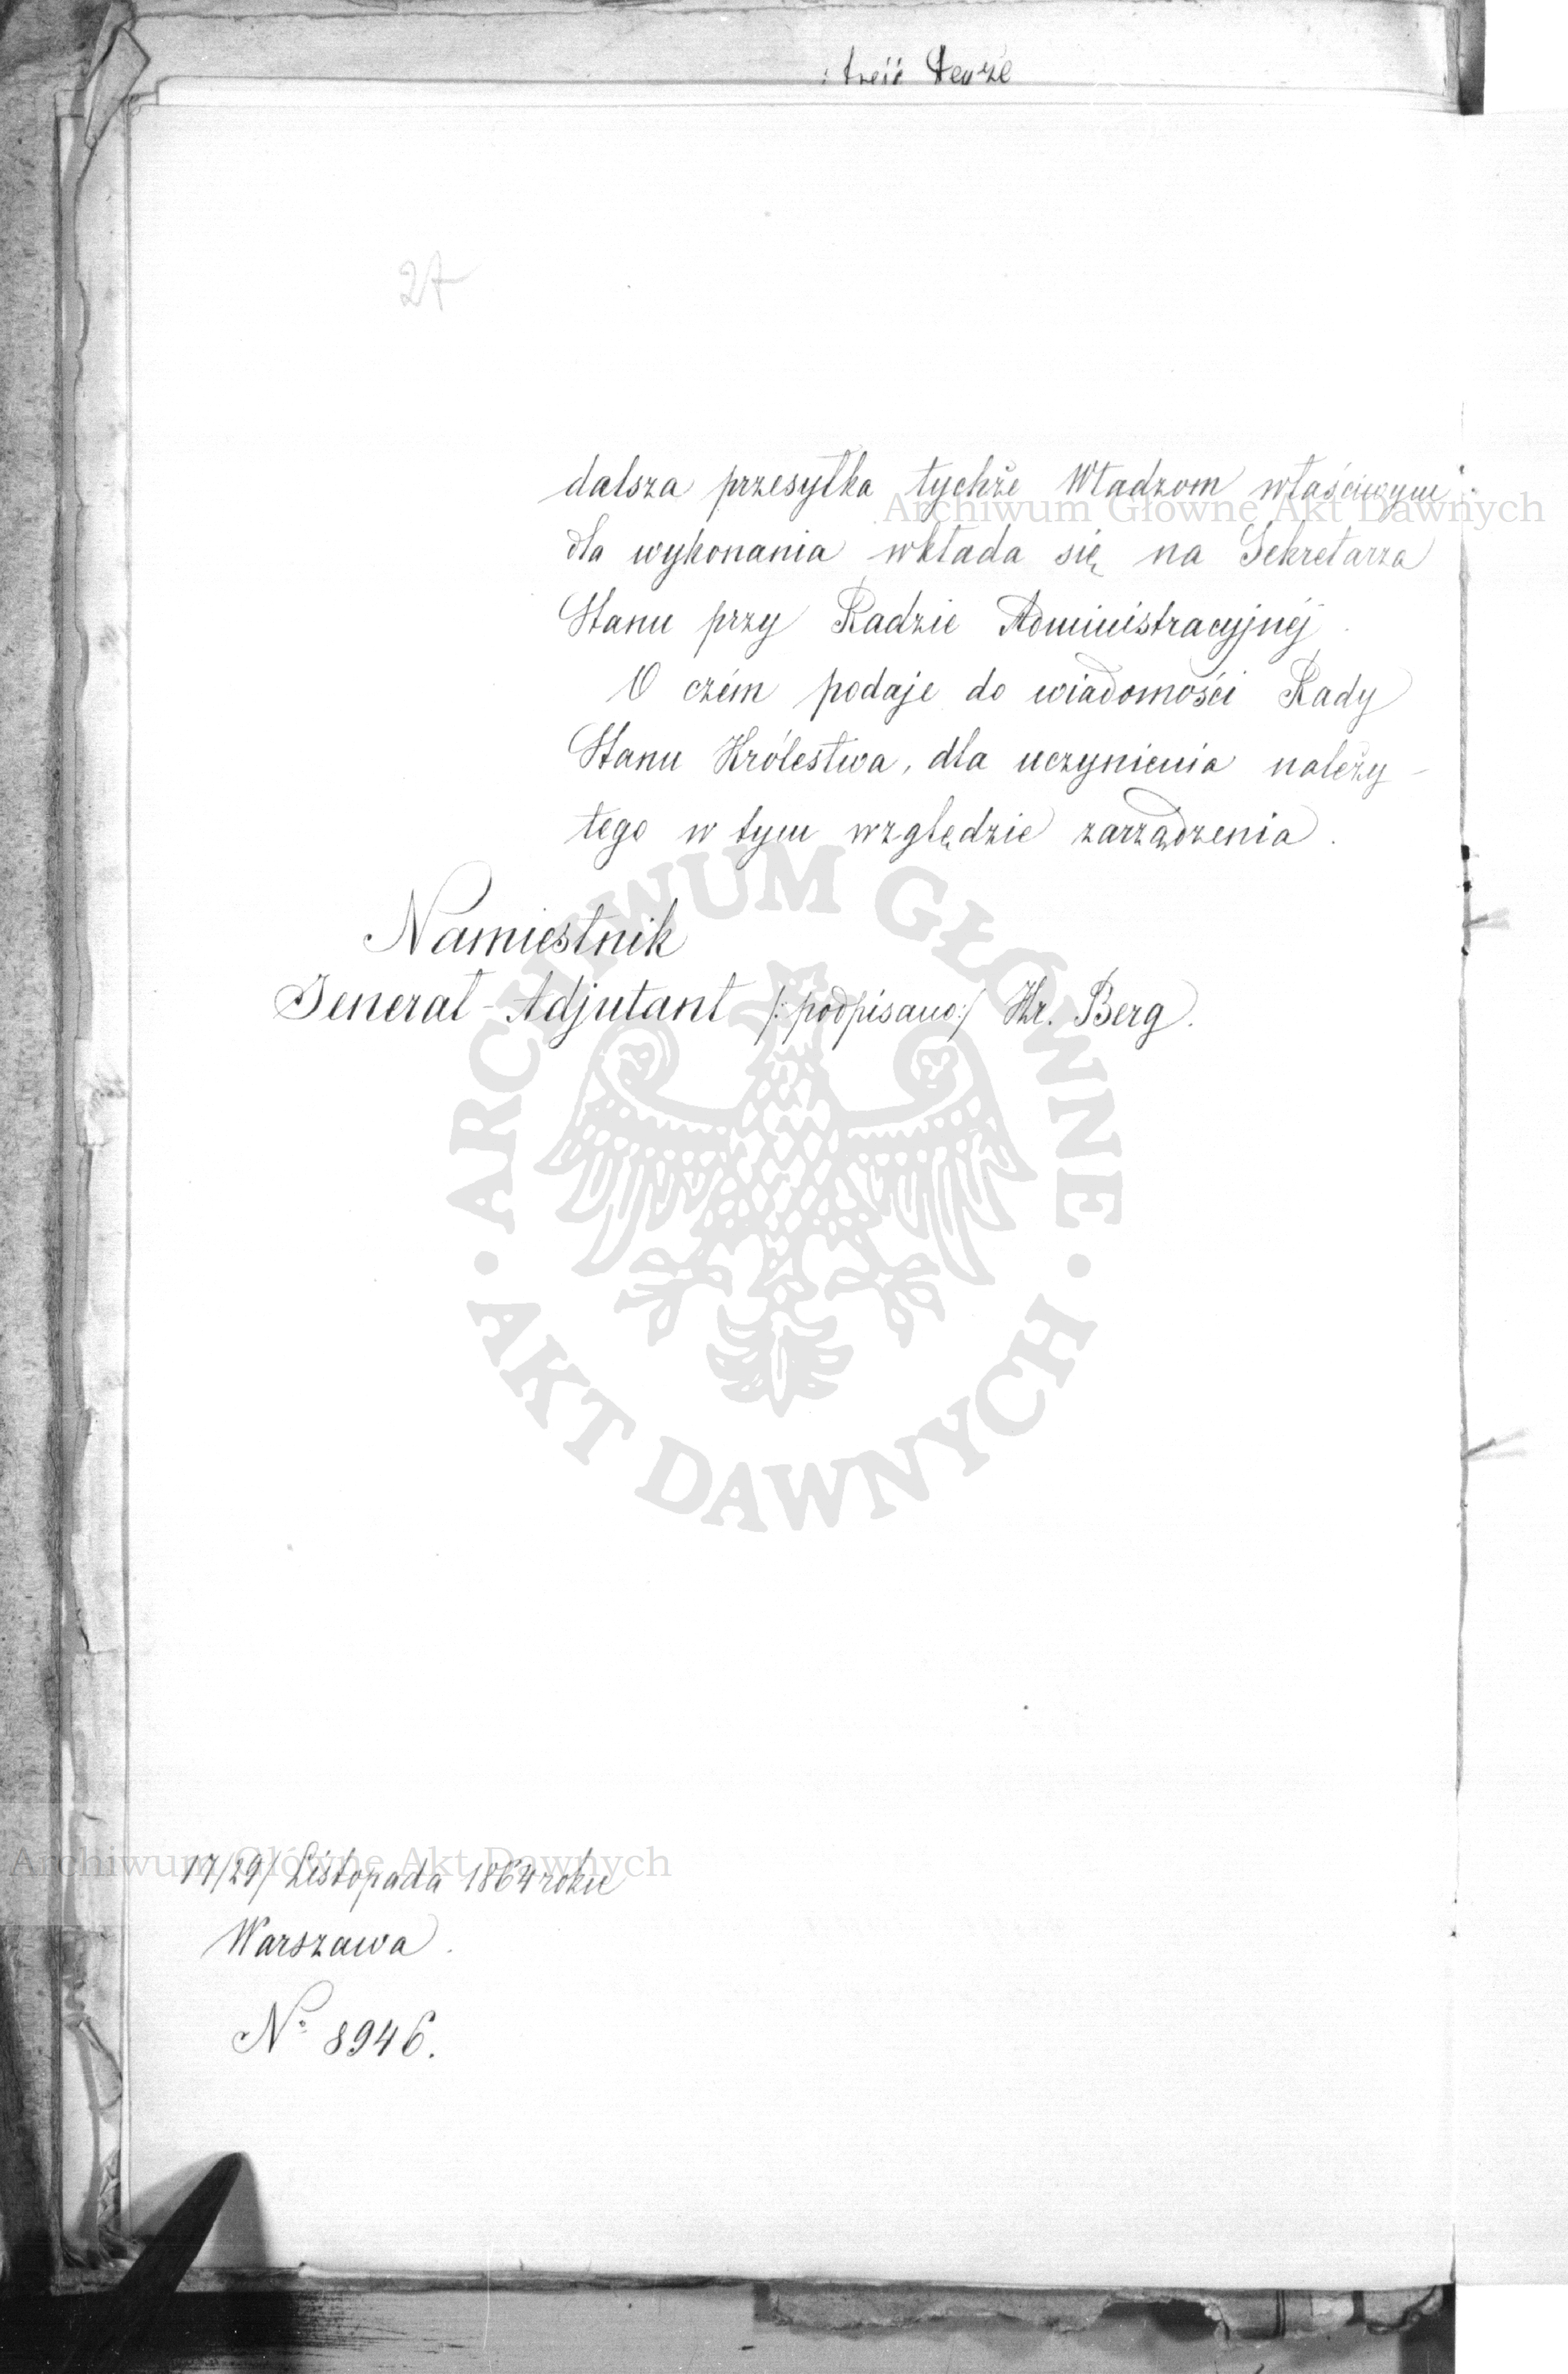 27
dalsza przesyłka tychże Władzom właściwym
dla wykonania wkłada się na Sekretarza
Stanu przy Radzie Administracyjnéj.
O czém podaje do wiadomości Rady
Stanu Królestwa, dla uczynienia należy-
tego w tym względzie zarządzenia.
Namiestnik
Jenerał-Adjutant /:podpisano:/ Hr. Berg.
17/29/ Listopada 1864 roku
Warszawa.
No 8946.
Archiwum Główne Akt Dawnych
ARCHIWUM GŁÓWNE AKT DAWNYCH
Archiwum Główne Akt Dawnych